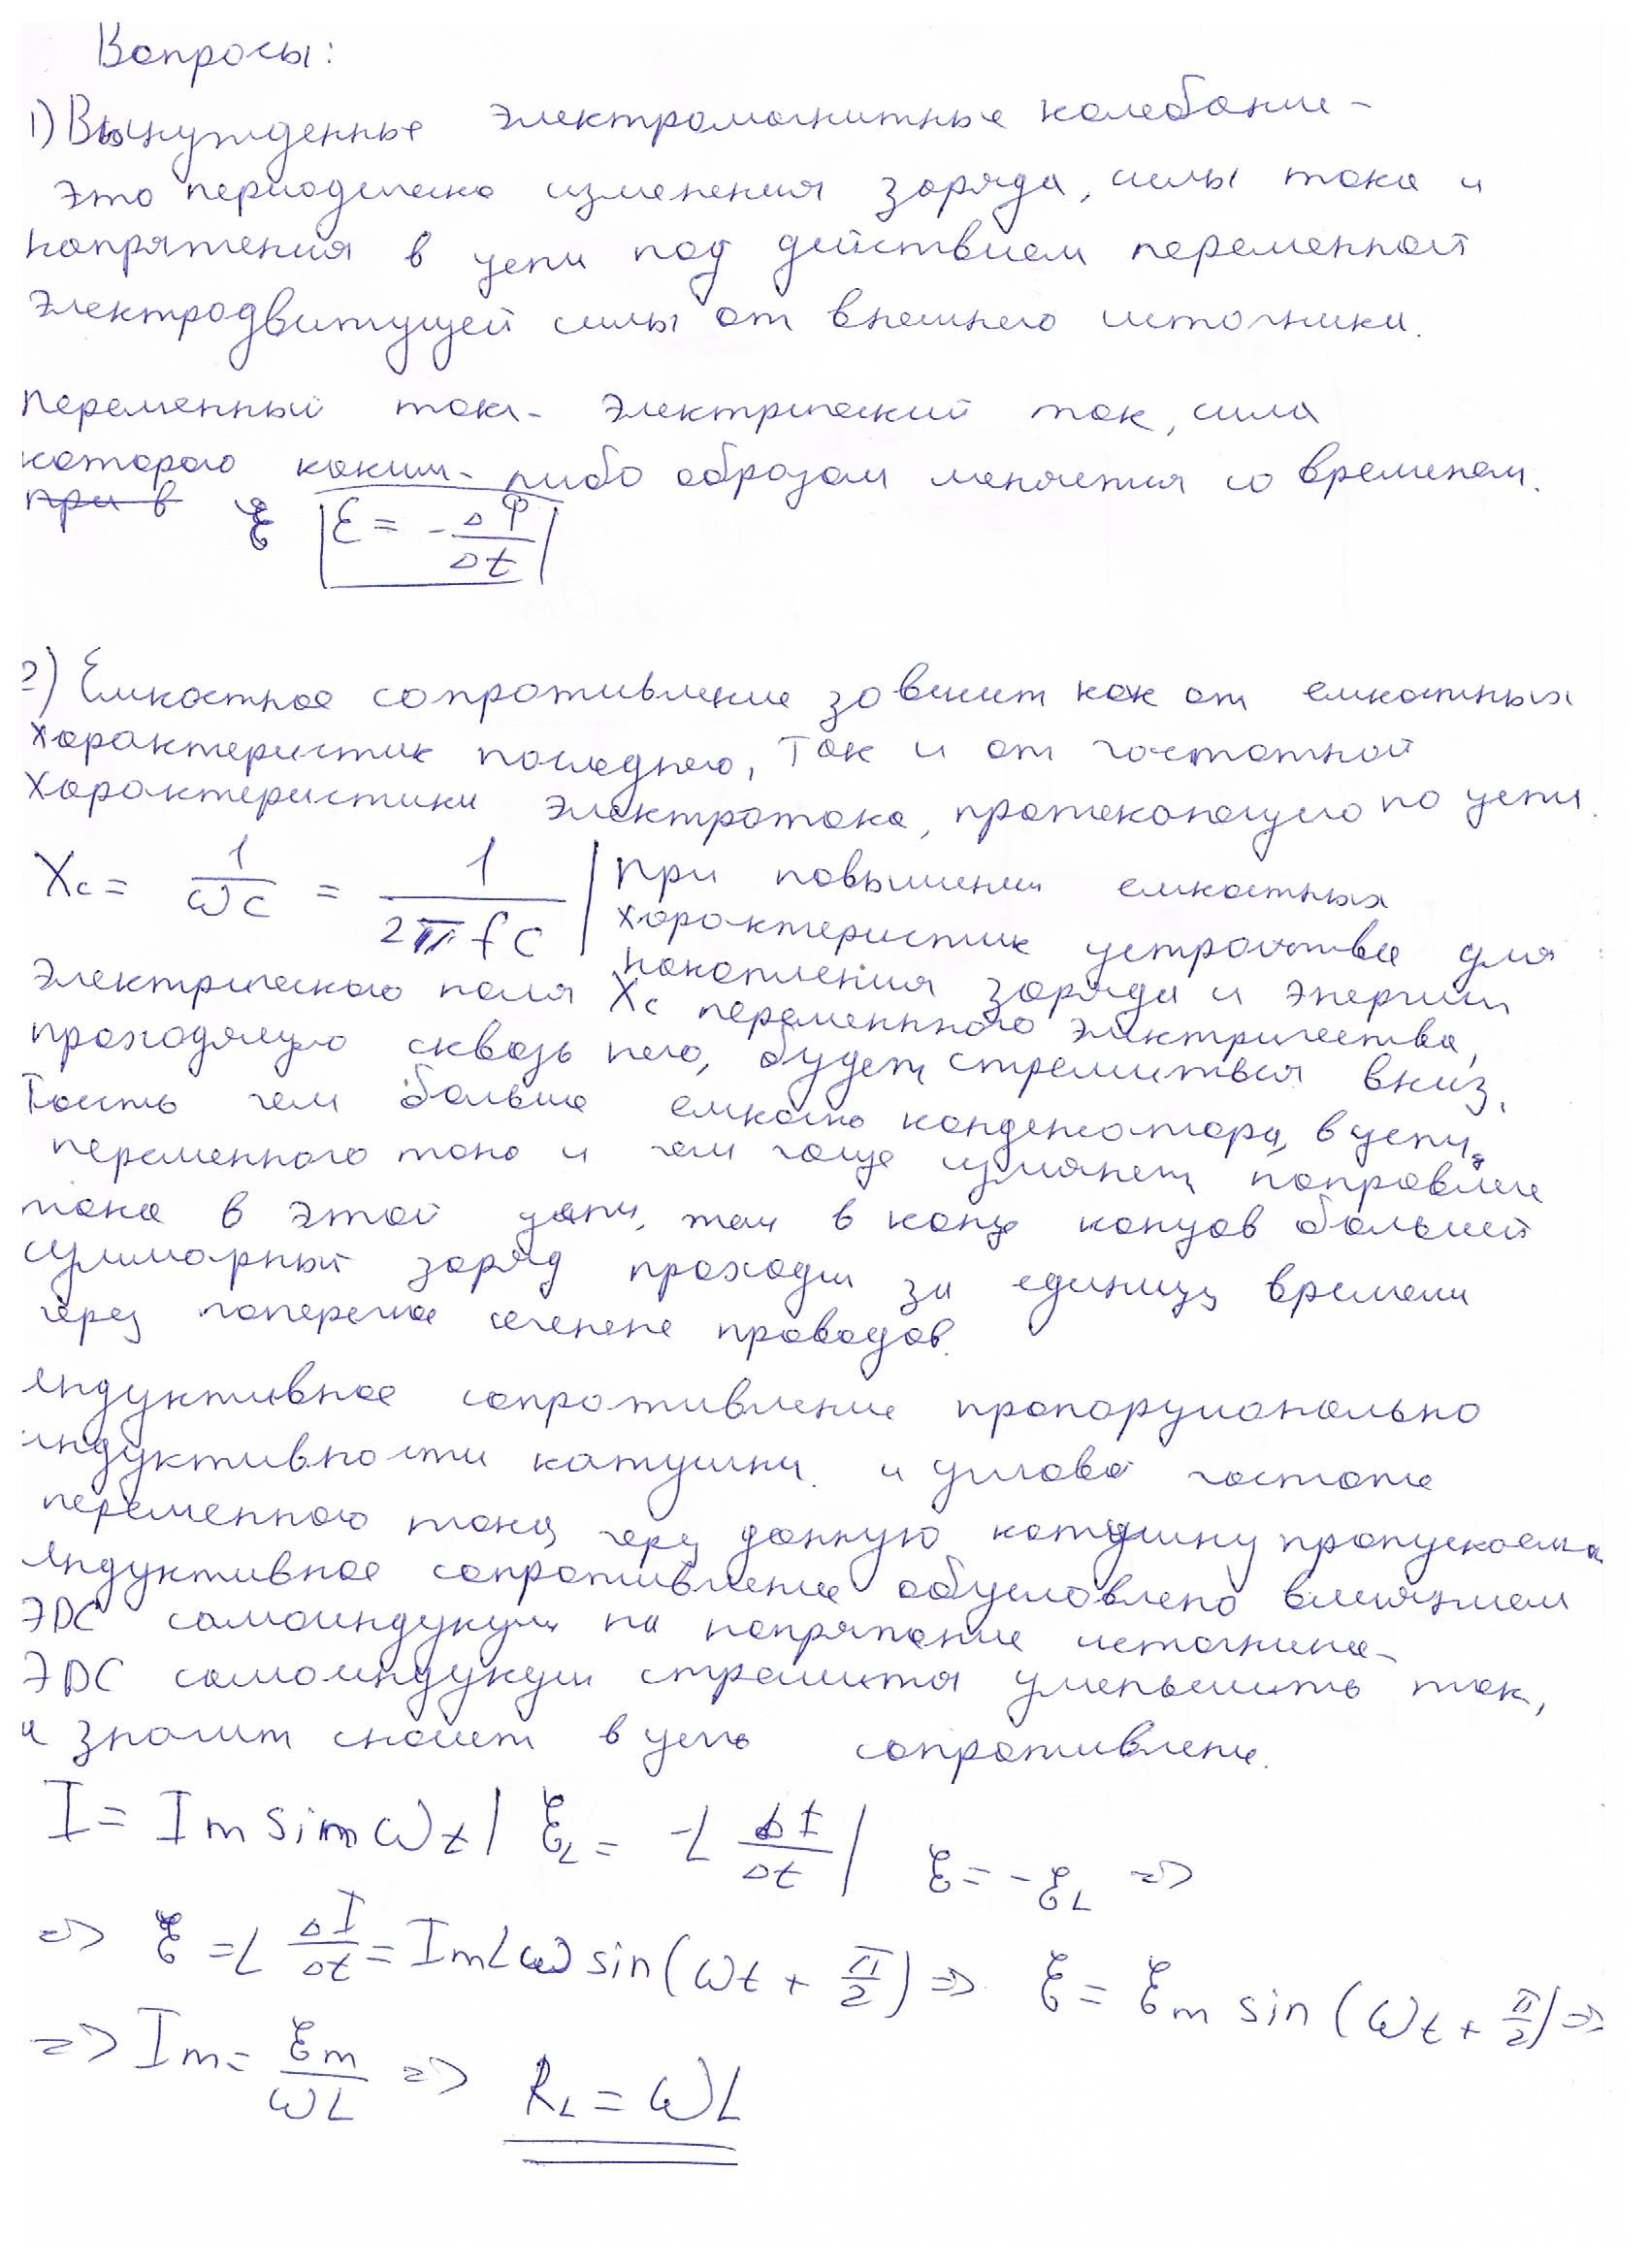 Вопросы:
1) Вынужденные электромагнитные колебание -
это периодическо изменения заряда, силы тока и
напряжения в цепи под действием переменной
электродвижущей силы от внешнего источники.
Переменный ток - электрический ток, сила
которого каким-либо образом меняется со временем.
при в ℰ ℰ = - ΔФ/Δt
2) Емкостное сопротивление зависит как от емкостных
характеристик последнего, так и от частотной
характеристики электротока, протекающего по цепи.
Xc = 1/ωC = 1/2πfC | При повышении емкостных
характеристик устройства для
накопления заряда и энергии
электрического поля Xc переменнного электричества,
проходящего сквозь него, будет стремиться вниз.
Тоесть чем больше емкость конденсатора, в цепи
переменного тока и чем чаще направлен
тока в этой цепи, тем в конце концов больший
суммарный заряд проходи за единицу времени
через поперечное сечение проводов.
Индуктивное сопротивление пропорционально
индуктивности катушки и углово частоте
переменного тока, через данную катушку пропускаемо
Индуктивное сопротивление обусловлено влиянием
ЭДС самоиндукции на напряжение источника -
ЭДС самоиндукции стремится уменьшить ток,
а значит в цепь сопротивлени.
I = Im sin ωt | ℰL = -L ΔI/Δt | ℰ = -ℰL =>
=> ℰ = L ΔI/Δt = ImLω sin(ωt + π/2) => ℰ = ℰm sin (ωt + π/2) =>
=> Im = ℰm/ωL => RL = ωL